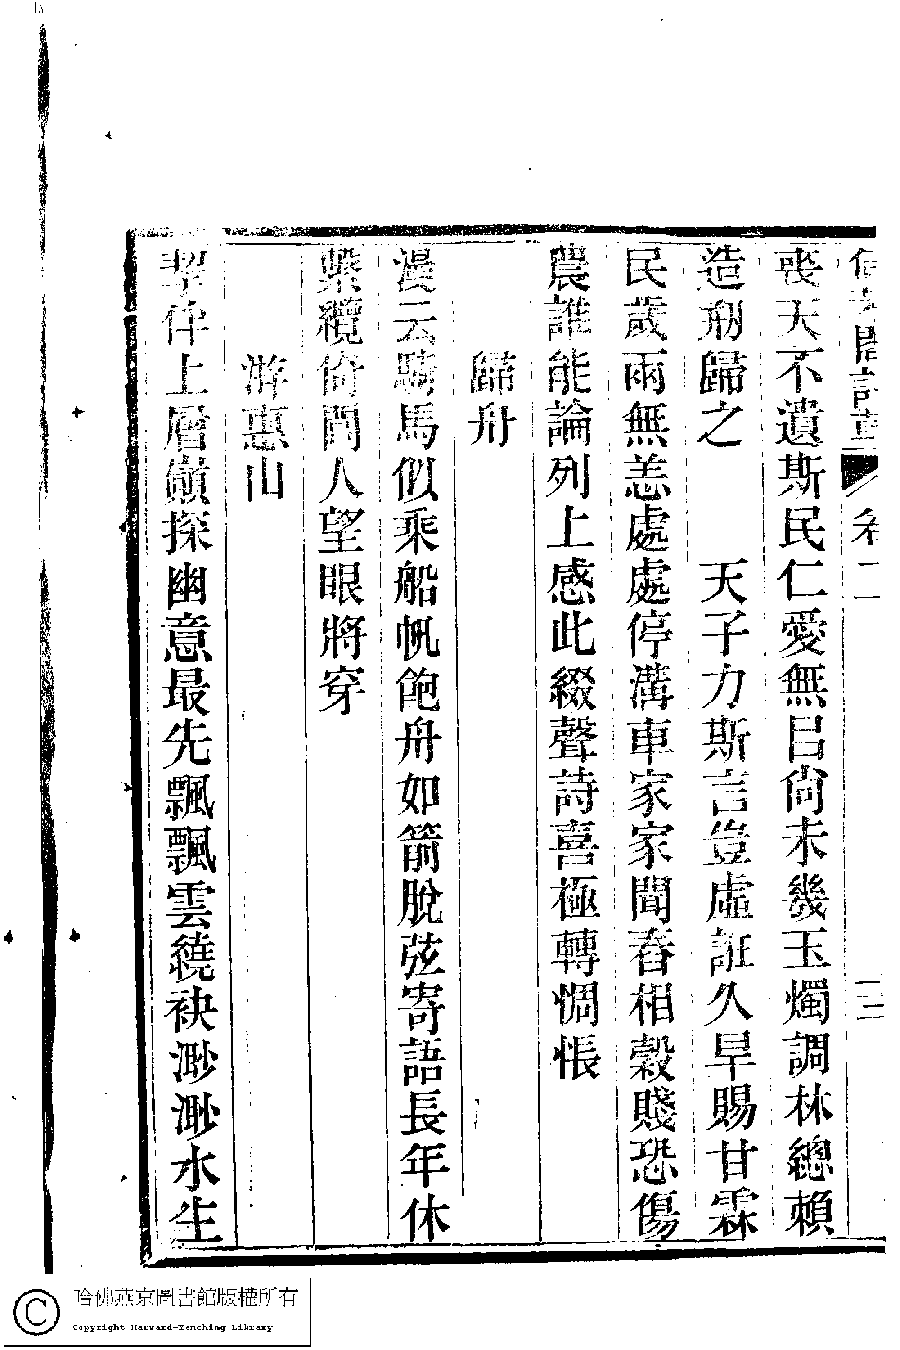 卷二
二
喪天不遺斯民仁愛無呂尙未幾玉燭調林總賴
造剏歸之　天子力斯言豈虛誑久旱賜甘霖
民歲雨無恙處處停溝車家家聞舂相穀賤恐傷
農誰能論列上感此綴聲詩喜極轉惆悵
歸舟
漫云騎馬似乘船帆飽舟如箭脫弦寄語長年休
繫纜倚閭人望眼將穿
游惠山
挈伴上層巓探幽意最先飄飄雲繞袂渺渺水生
哈佛燕京圖書館版權所有
Copyright Harvard-Yenching Library